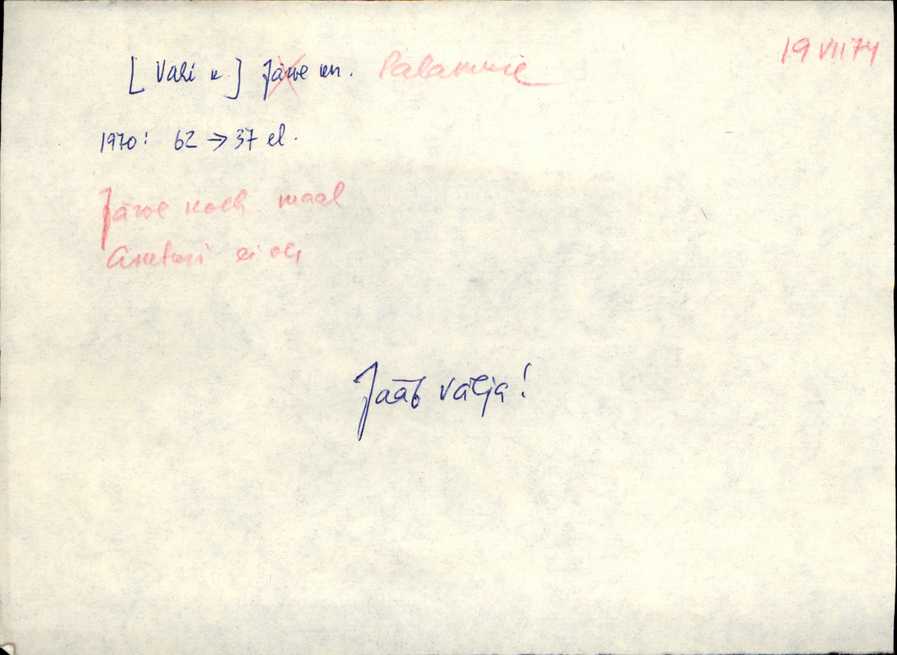 19 VII 74
[Vali k.] Järve kn. Palamuse
1970: 62 → 37 el.
Järve maal
ei ole
Jääb välja!